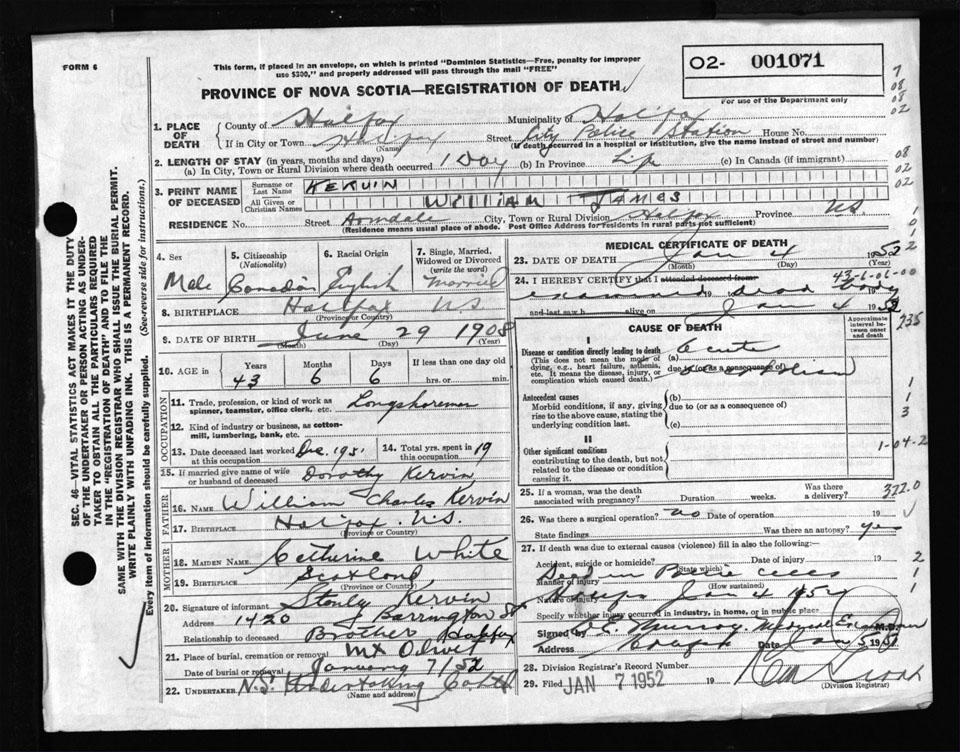 FORM 6
This form, if placed in an envelope, on which is printed "Dominion Statistics—Free, penalty for improper
use $300," and properly addressed will pass through the mail "FREE"
O2- 001071
For use of the Department only
PROVINCE OF NOVA SCOTIA—REGISTRATION OF DEATH
1. PLACE OF DEATH
County of Halifax Municipality of Halifax
If in City or Town Halifax (Name) Street City Police Station House No.
(If death occurred in a hospital or institution, give the name instead of street and number)
2. LENGTH OF STAY (in years, months and days)
(a) In City, Town or Rural Division where death occurred 1 Day (b) In Province Life (c) In Canada (if immigrant)
3. PRINT NAME OF DECEASED
Surname or Last Name KERVIN
All Given or Christian Names WILLIAM JAMES
RESIDENCE No. Street Armdale City, Town or Rural Division Halifax Province N.S.
(Residence means usual place of abode. Post Office Address for residents in rural parts not sufficient)
4. Sex Male
5. Citizenship (Nationality) Canadian
6. Racial Origin English
7. Single, Married, Widowed or Divorced (write the word) Married
8. BIRTHPLACE Halifax N.S.
(Province or Country)
9. DATE OF BIRTH June 29 1908
(Month) (Day) (Year)
10. AGE in Years Months Days If less than one day old
43 6 6 hrs. or min.
OCCUPATION
11. Trade, profession, or kind of work as spinner, teamster, office clerk, etc. Longshoreman
12. Kind of industry or business, as cotton-mill, lumbering, bank, etc.
13. Date deceased last worked at this occupation Dec. 1951
14. Total yrs. spent in this occupation 19
15. If married give name of wife or husband of deceased Dorothy Kervin
FATHER
16. NAME William Charles Kervin
17. BIRTHPLACE Halifax N.S.
(Province or Country)
MOTHER
18. MAIDEN NAME Catherine White
19. BIRTHPLACE Scotland
(Province or Country)
20. Signature of informant Stanly Kervin
Address 1420 Barrington St
Relationship to deceased Brother Halifax
21. Place of burial, cremation or removal Mx Olivet
January 7/52
22. UNDERTAKER N.S. Undertaking Co. Ltd
(Name and address)
MEDICAL CERTIFICATE OF DEATH
23. DATE OF DEATH Jan 4 1952
(Month) (Day) (Year)
24. I HEREBY CERTIFY that I attended deceased from 43-6-06-00
examined 19 dead body
and last saw h alive on Jan 4 1952
CAUSE OF DEATH
Approximate interval between onset and death
I
Disease or condition directly leading to death (a) Acute
(This does not mean the mode of dying, e.g., heart failure, asthenia, etc. It means the disease, injury, or complication which caused death.) due to (or as a consequence of) Alcoholism
Antecedent causes
Morbid conditions, if any, giving rise to the above cause, stating the underlying condition last.
(b)
due to (or as a consequence of)
(c)
II
Other significant conditions
contributing to the death, but not related to the disease or condition causing it.
1-04-2
25. If a woman, was the death associated with pregnancy? Duration weeks. Was there a delivery?
322.0
26. Was there a surgical operation? no Date of operation 19
State findings Was there an autopsy? yes
27. If death was due to external causes (violence) fill in also the following:—
Accident, suicide or homicide? (State which) Date of injury 19
Manner of injury (How sustained)
Died in Police cells
Nature of injury Halifax Jan 4 1952
Specify whether injury occurred in industry, in home, or in public place
Signed by Murray Medical Examiner M.D.
Address Halifax Date Jan 5 1952
28. Division Registrar's Record Number
29. Filed JAN 7 1952 19
(Division Registrar)
SEC. 46—VITAL STATISTICS ACT MAKES IT THE DUTY
OF THE UNDERTAKER OR PERSON ACTING AS UNDER-
TAKER TO OBTAIN ALL THE PARTICULARS REQUIRED
IN THE "REGISTRATION OF DEATH" AND TO FILE THE
SAME WITH THE DIVISION REGISTRAR WHO SHALL ISSUE THE BURIAL PERMIT.
WRITE PLAINLY WITH UNFADING INK. THIS IS A PERMANENT RECORD.
Every item of information should be carefully supplied. (See reverse side for instructions.)